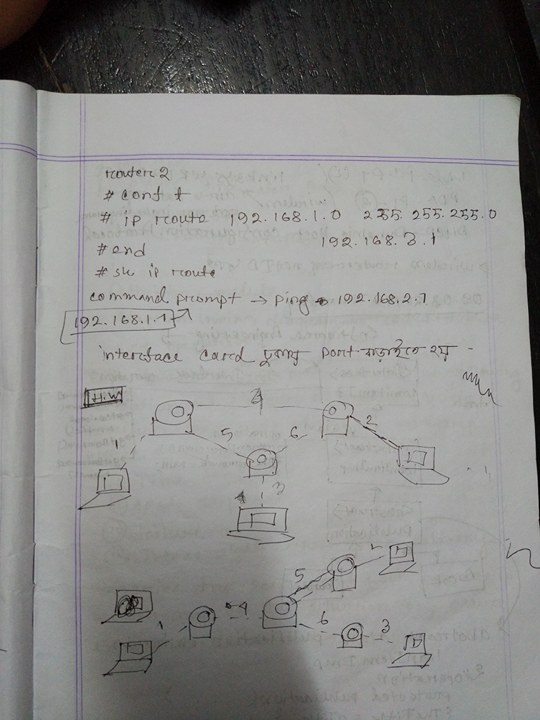 router 2
# conf t
# ip route 192.168.1.0 255.255.255.0
192.168.3.1
# end
# sh ip route
command prompt → ping 192.168.2.1
192.168.1.1
interface card port বাড়াইতে হয়
H.W
4
1
5
6
2
3
5
2
1
4
6
3